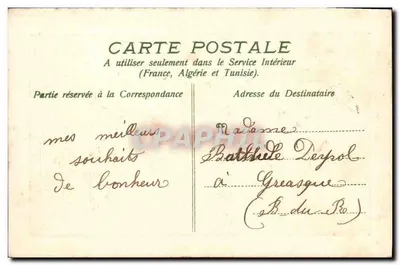 CARTE POSTALE
A utiliser seulement dans le Service Intérieur
(France, Algérie et Tunisie).
Partie réservée à la Correspondance
Adresse du Destinataire
mes meilleurs
souhaits
de bonheur
Madame
Despol
à Greasque
(B. du R)